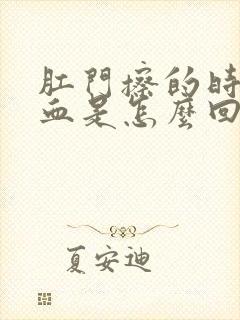 肛門擦的時
血是怎麼回
夏安迪